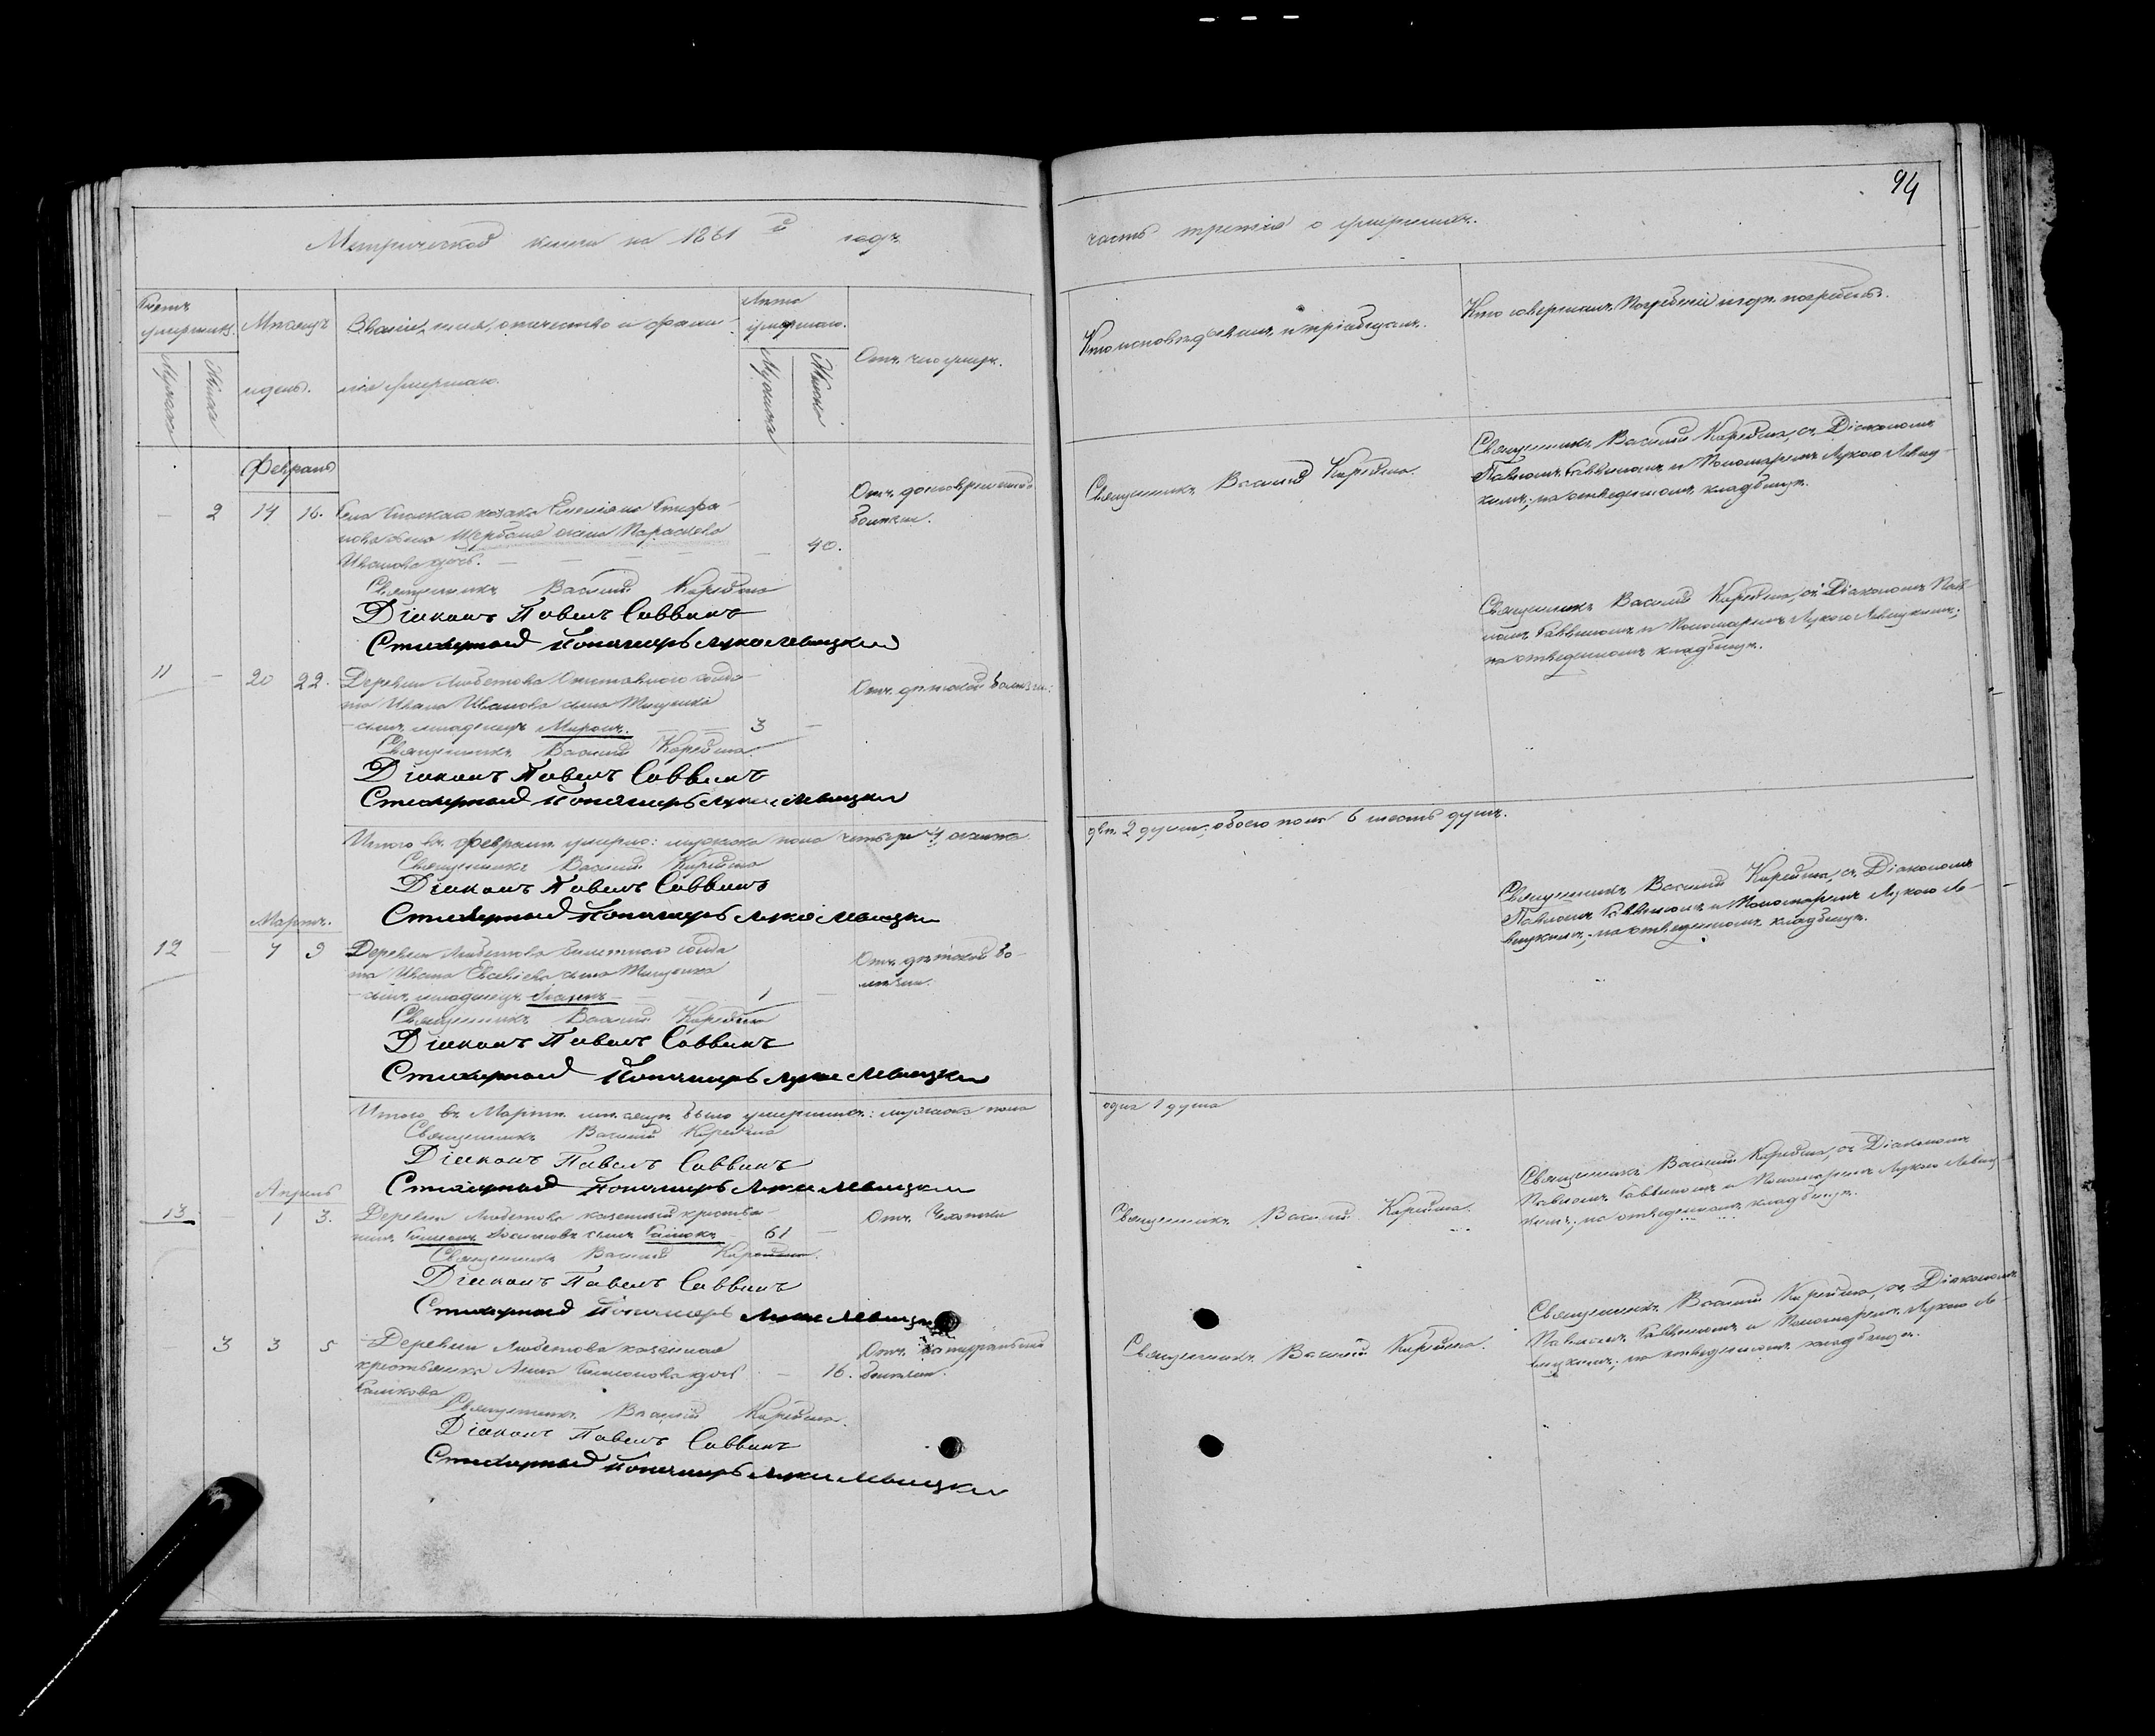 94
Метрической книги на 1861 й годъ
часть третія о умершихъ.
Счетъ умершихъ.
Мужеска
Женска
Мѣсяцъ и день.
Званіе, имя, отчество и фами-
лія умершаго.
Лѣта умершаго.
Мужеска
Женска
Отъ чего умеръ.
Кто исповѣдывалъ и пріобщалъ.
Кто совершалъ погребеніе и гдѣ погребены.
Февраль
– 2 14 16. козака Стефа-
нова сына жена Параскева
Иванова дочь. – 40.
Отъ
болезни.
Священникъ Василій
Священникъ Василій съ Діакономъ
Павломъ Саввинымъ и Пономаремъ Лукою Левиц-
кимъ; на отведенномъ кладбищѣ.
Священникъ Василій
Діаконъ Павелъ Саввинъ
Стихарный Пономарь Лука Левицкій
11 – 20 22. Деревни Любетова Отставного солда-
та Ивана Иванова сына Тищенка
сынъ, младенецъ Миронъ. 3 –
Отъ дѣтской болезни.
Священникъ Василій съ Діакономъ Пав-
ломъ Саввинымъ и Пономаремъ Лукою Левицкимъ;
на отведенномъ кладбищѣ.
Священникъ Василій
Діаконъ Павелъ Саввинъ
Стихарный Пономарь Лука Левицкій
Итого въ Февралѣ умерло: мужска пола четыре 4, женска
двѣ 2 души, обоего пола 6 шесть душъ.
Священникъ Василій
Діаконъ Павелъ Саввинъ
Стихарный Пономарь Лука Левицкій
Мартъ.
12 – 7 9 Деревни Любетова билетнаго солда-
та Ивана Евсевіева сына Тищенка
сынъ, младенецъ 1 –
Отъ дѣтской бо-
лезни.
Священникъ Василій съ Діакономъ
Павломъ Саввинымъ и Пономаремъ Лукою Ле-
вицкимъ; на отведенномъ кладбищѣ.
Священникъ Василій
Діаконъ Павелъ Саввинъ
Стихарный Пономарь Лука Левицкій
Итого въ Мартѣ мѣсяцѣ было умершихъ: мужска пола
одна 1 душа
Священникъ Василій
Діаконъ Павелъ Саввинъ
Стихарный Пономарь Лука Левицкій
Апрель
13 – 1 3. Деревни Любетова казенный крестья-
нинъ Симеонъ сынъ 61 –
Отъ Чахотки
Священникъ Василій
Священникъ Василій съ Діакономъ
Павломъ Саввинымъ и Пономаремъ Лукою Левиц-
кимъ; на отведенномъ кладбищѣ.
Священникъ Василій
Діаконъ Павелъ Саввинъ
Стихарный Пономарь Лука Левицкій
3 3 5 Деревни Любетова казенная
крестьянка Анна Симеонова дочь – 16.
Отъ натуральной
болезни.
Священникъ Василій
Священникъ Василій съ Діакономъ
Павломъ Саввинымъ и Пономаремъ Лукою Ле-
вицкимъ; на отведенномъ кладбищѣ.
Священникъ Василій
Діаконъ Павелъ Саввинъ
Стихарный Пономарь Лука Левицкій